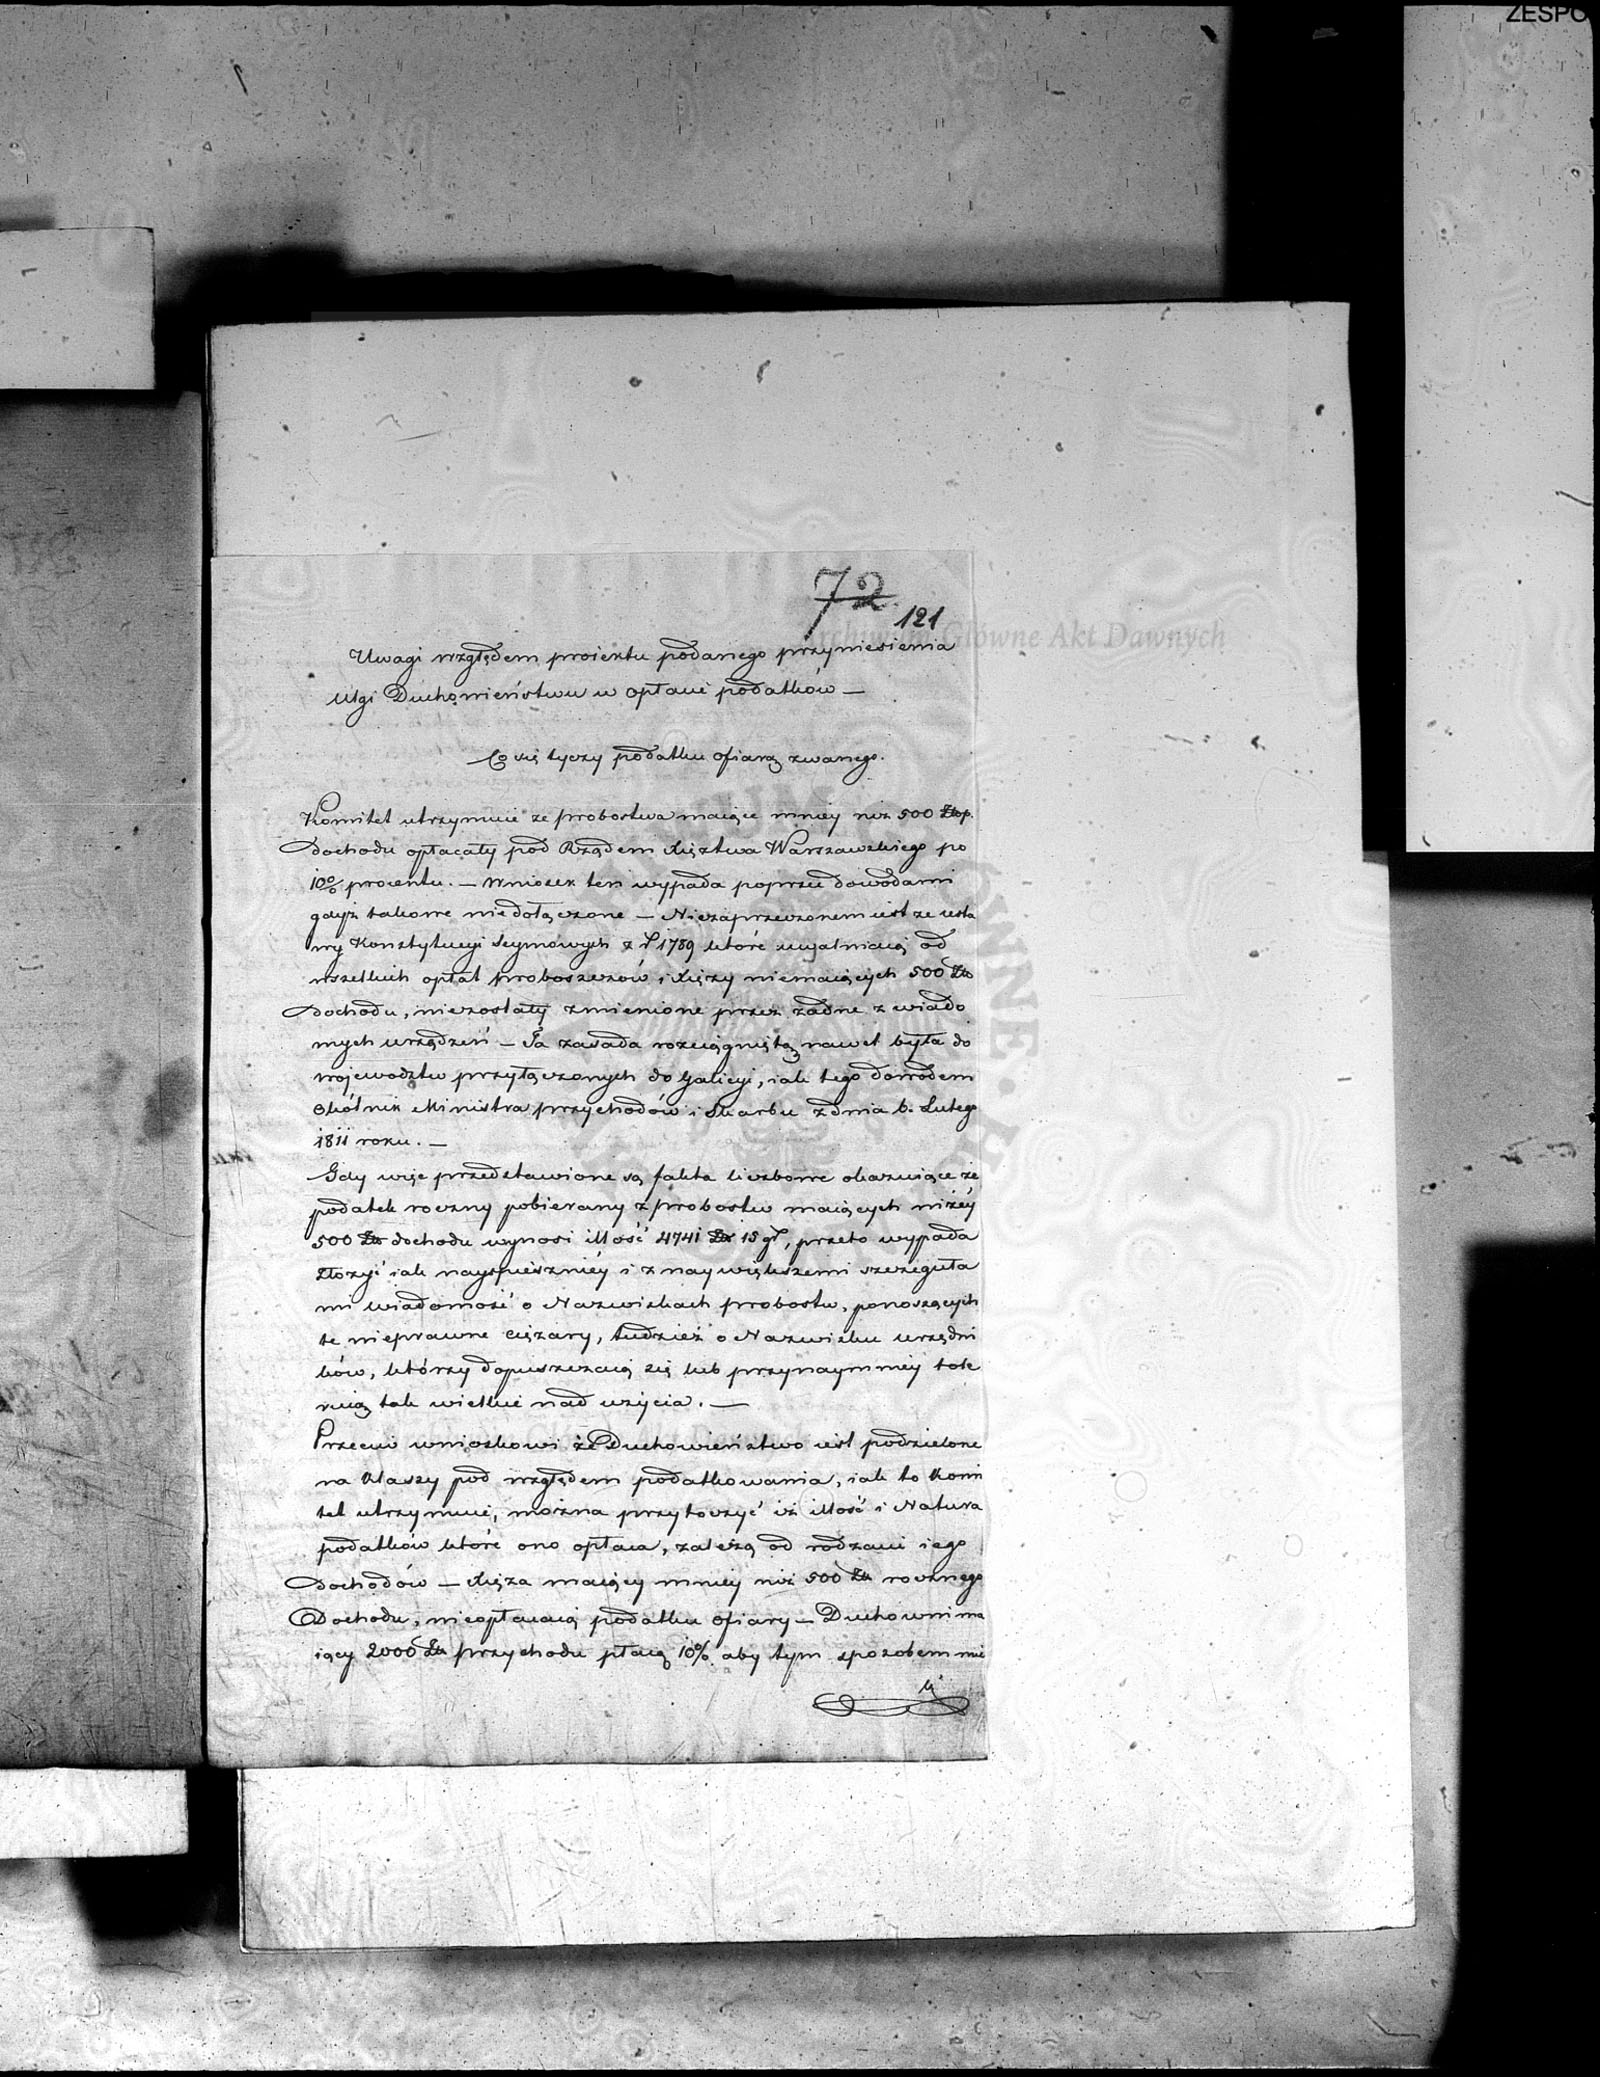 ZESPO
72
121
Archiwum Główne Akt Dawnych
Uwagi względem proiektu podanego przyniesienia
Ulgi Duchowieństwu w opłacie podatków —
Co się tyczy podatku ofiarą zwanego.
Komitet utrzymuie że probostwa maiące mniey niż 500 Złop.
dochodu opłacały pod Rządem Xięztwa Warszawskiego po
10% procentu. — Wniosek ten wypada poprzeć dowodami
gdyż takowe niedołączone — Niezaprzeczonem iest że usta
wy Konstytucyi Seymowych z r 1789 które uwalniaią od
wszelkich opłat proboszczów i Xięży niemaiących 500 Zło
dochodu, niezostały zmienione przez żadne z wiado
mych urządzeń — Ta zasada rozciągniętą nawet była do
Woiewodztw przyłączonych do Galicyi, iak tego dowodem
Okólnik Ministra przychodów i Skarbu z dnia 6. Lutego
1811 roku. —
Gdy więc przedstawione są fakta liczbowe okazuiące że
podatek roczny pobierany z probostw maiących niżéy
500 Zło dochodu wynosi illość 4741 Zł 15 gr, przeto wypada
złożyć iak nayspieszniéy i z naywiększemi szczeguła
mi wiadomość o Nazwiskach probostw, ponoszących
te nieprawne ciężary, tudzież o Nazwisku urzędni
ków, którzy dopuszczaią się lub przynaymniey tole
ruią tak wielkie nad użycia. —
Przeciw wnioskowi że Duchowieństwo iest podzielone
na Klassy pod względem podatkowania, iak to Komi
tet utrzymuie, można przytoczyć iż illość i Natura
podatków które ono opłaca, zależą od rodzaiu iego
dochodów — Xięża maiący mniey niż 500 Zł rocznego
Dochodu, nieopłacaią podatku ofiary — Duchowni ma
iący 2000 Zł przychodu płacą 10% aby tym sposobem nie